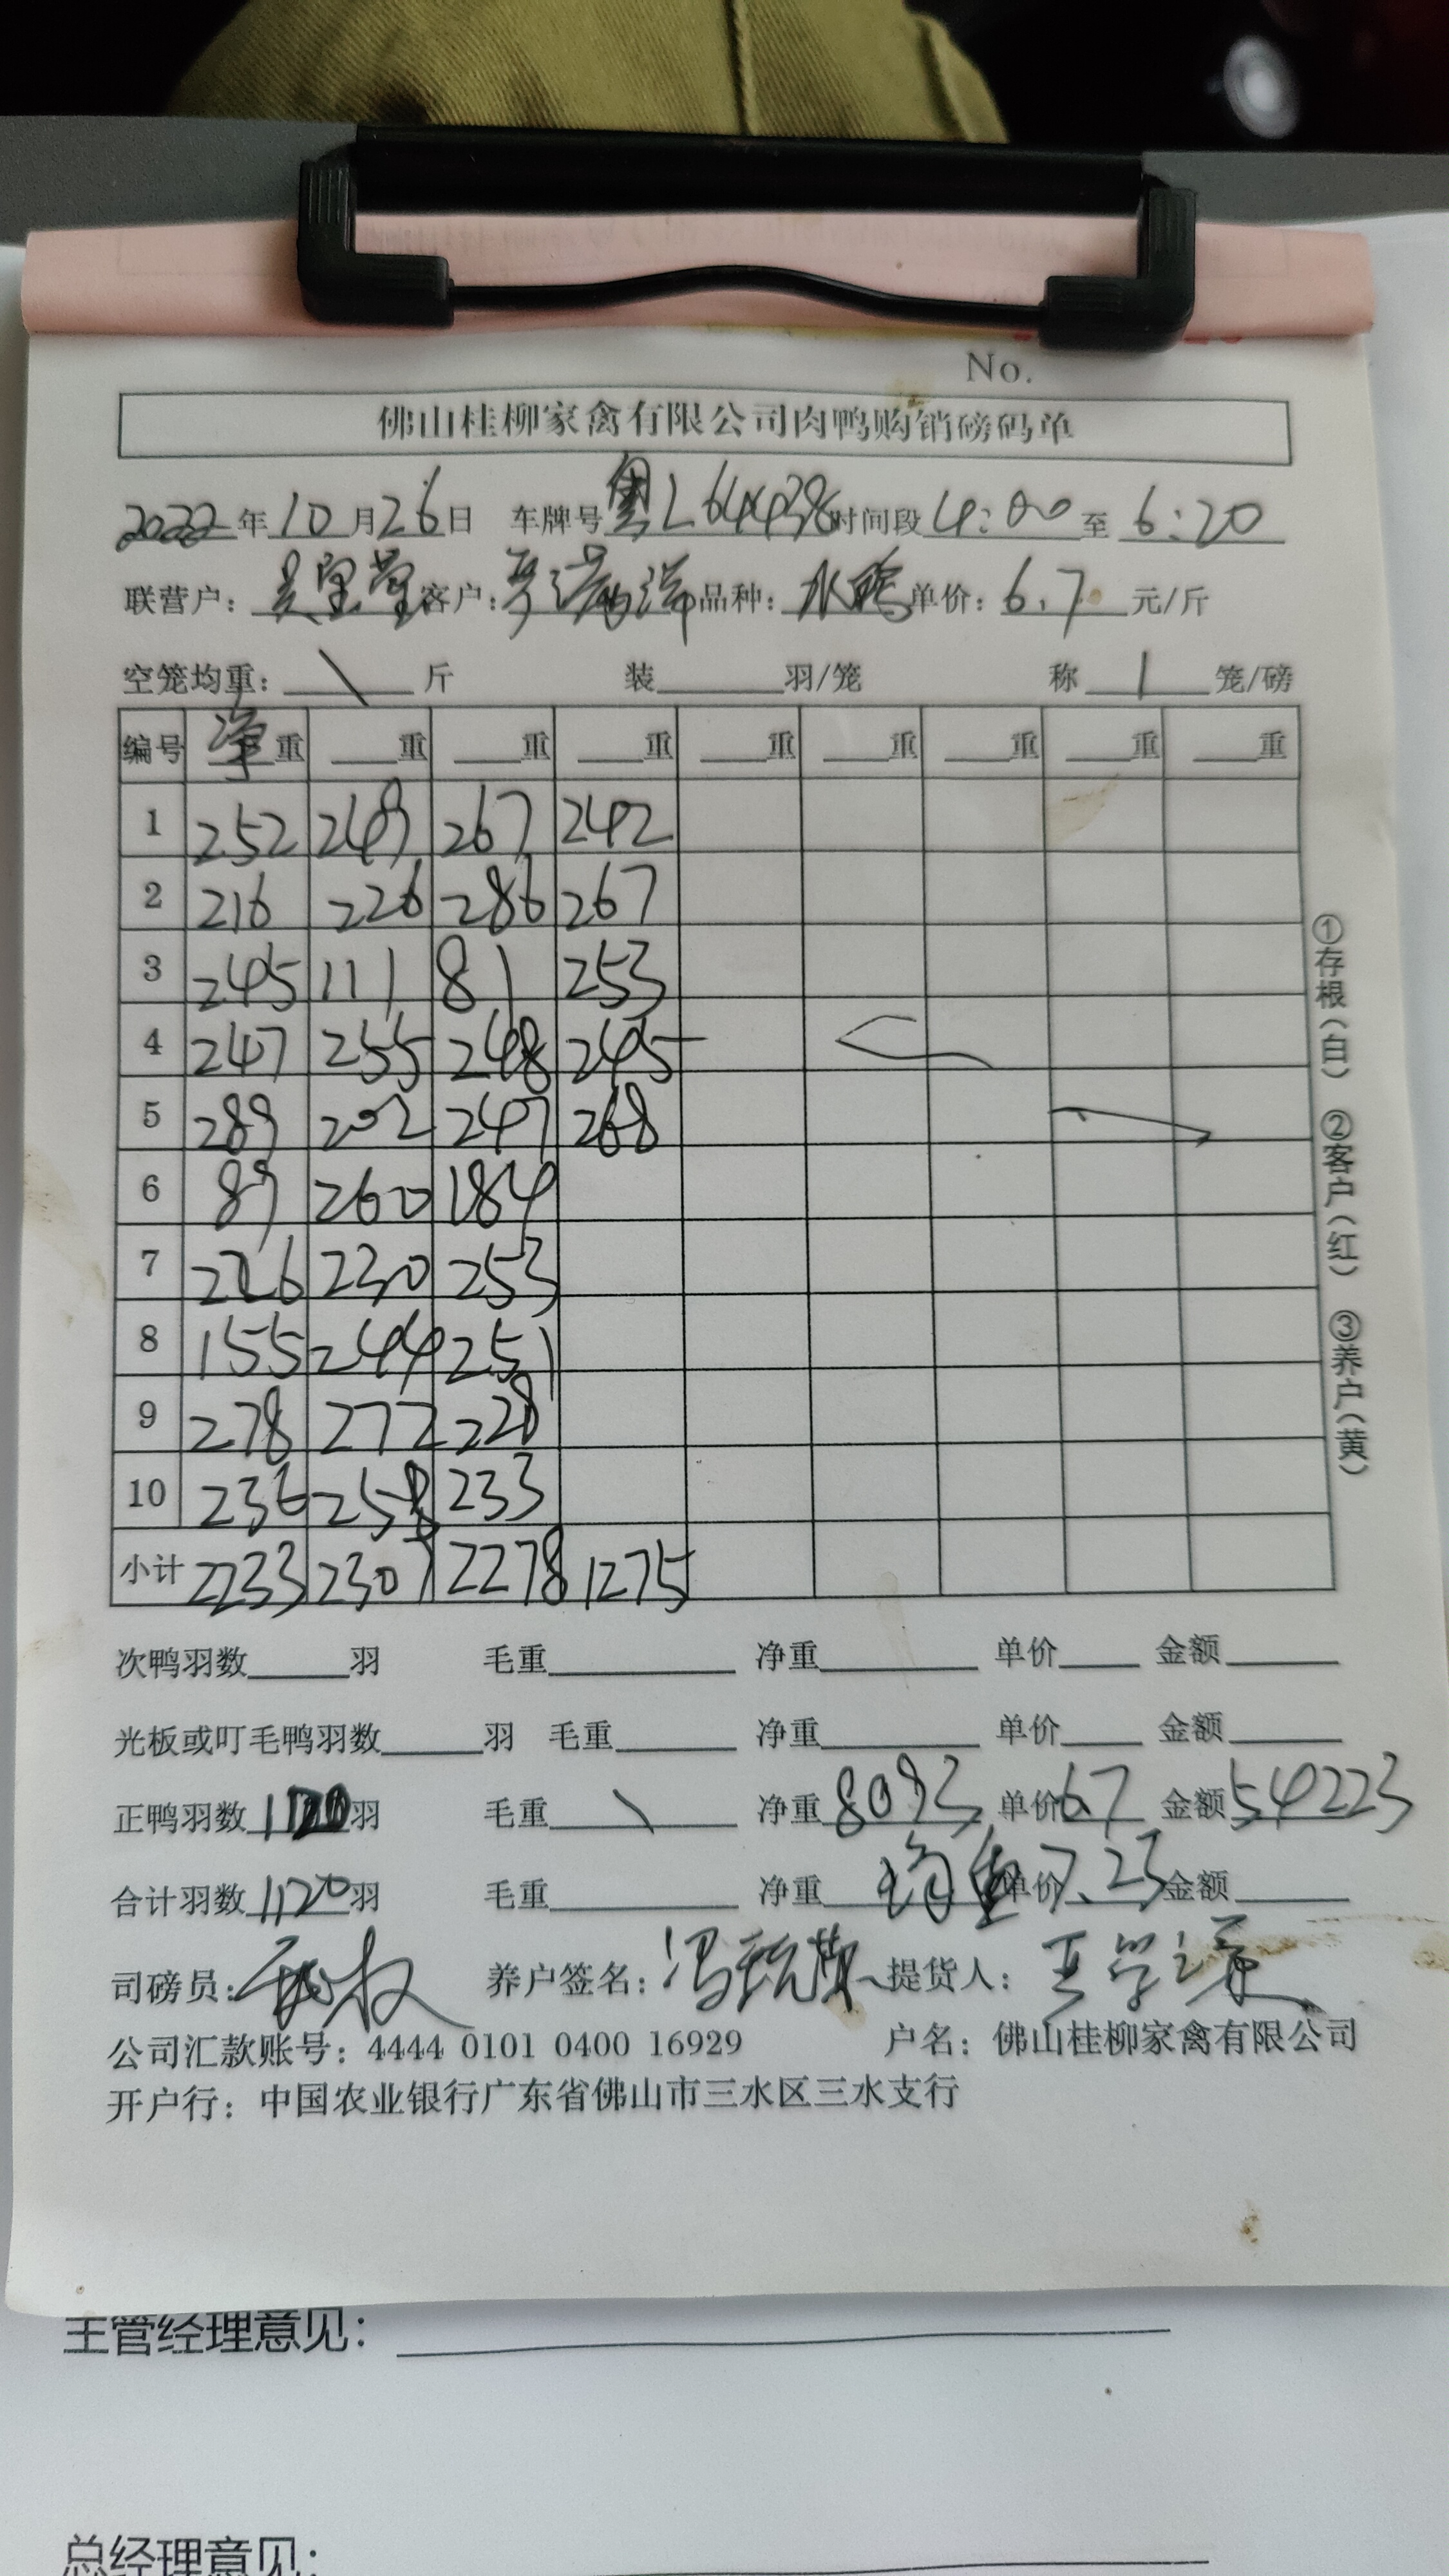 No.
佛山桂柳家禽有限公司肉鸭购销磅码单
2022年10月26日 车牌号粤L64438时间段4:00至6:20
联营户： 客户： 品种：水鸭 单价：6.7元/斤
空笼均重：\斤 装____羽/笼 称1笼/磅
编号 净重 ___重 ___重 ___重 ___重 ___重 ___重 ___重 ___重
1 252 249 267 242
2 216 226 286 267
3 245 111 81 253
4 247 255 248 245
5 289 202 247 268
6 89 260 184
7 226 230 253
8 155 244 251
9 278 272 228
10 236 258 233
小计 2233 2307 2278 1275
①存根(白) ②客户(红) ③养户(黄)
次鸭羽数____羽 毛重____ 净重____ 单价____ 金额____
光板或叮毛鸭羽数____羽 毛重____ 净重____ 单价____ 金额____
正鸭羽数1120羽 毛重\ 净重8093 单价6.7 金额54223
合计羽数1120羽 毛重____ 净重 均重 单价7.23 金额____
司磅员： 养户签名：冯 提货人：
公司汇款账号：4444 0101 0400 16929 户名：佛山桂柳家禽有限公司
开户行：中国农业银行广东省佛山市三水区三水支行
主管经理意见：
总经理意见：